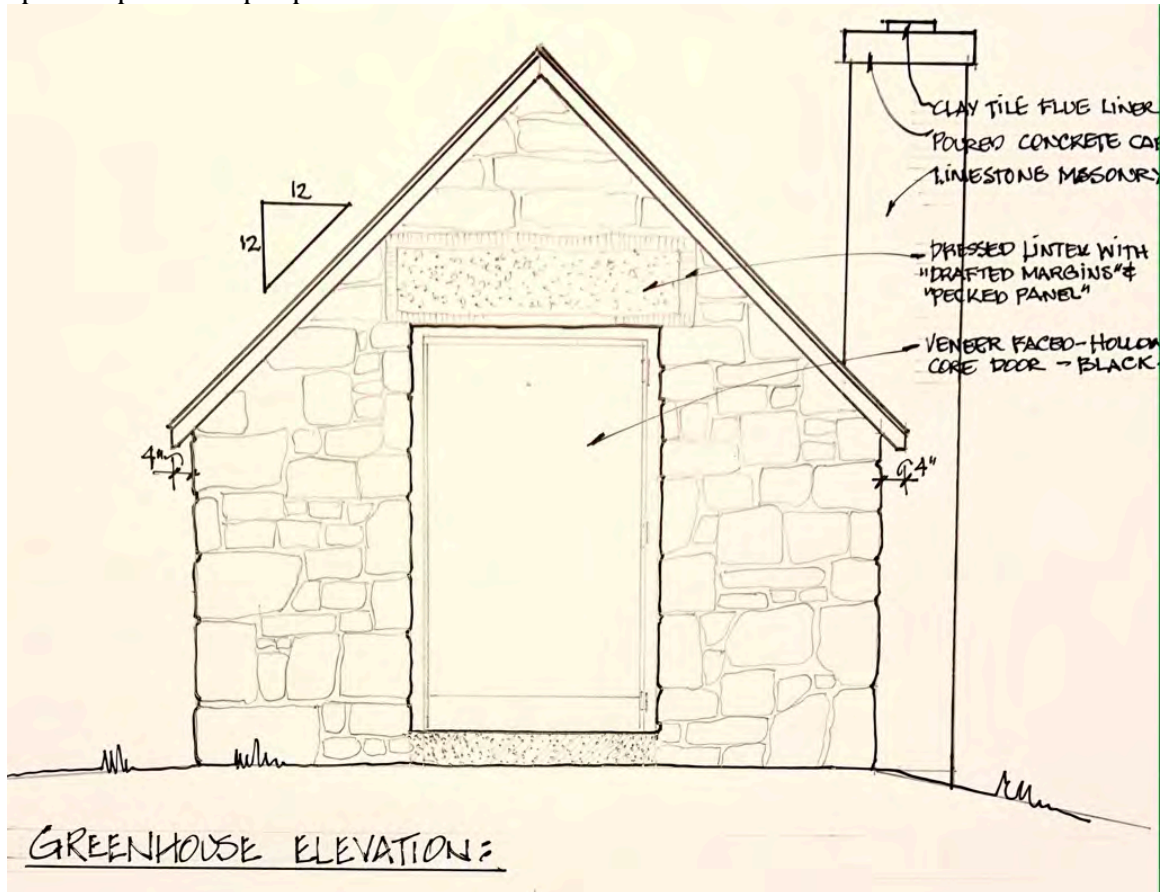 12
12
CLAY TILE FLUE LINER
POURED CONCRETE
LIMESTONE MASONRY
DRESSED LINTEL WITH
"DRAFTED MARGINS" &
"PECKED PANEL"
VENEER FACED-HOLLOW
CORE DOOR - BLACK
4"
4"
GREENHOUSE ELEVATION: